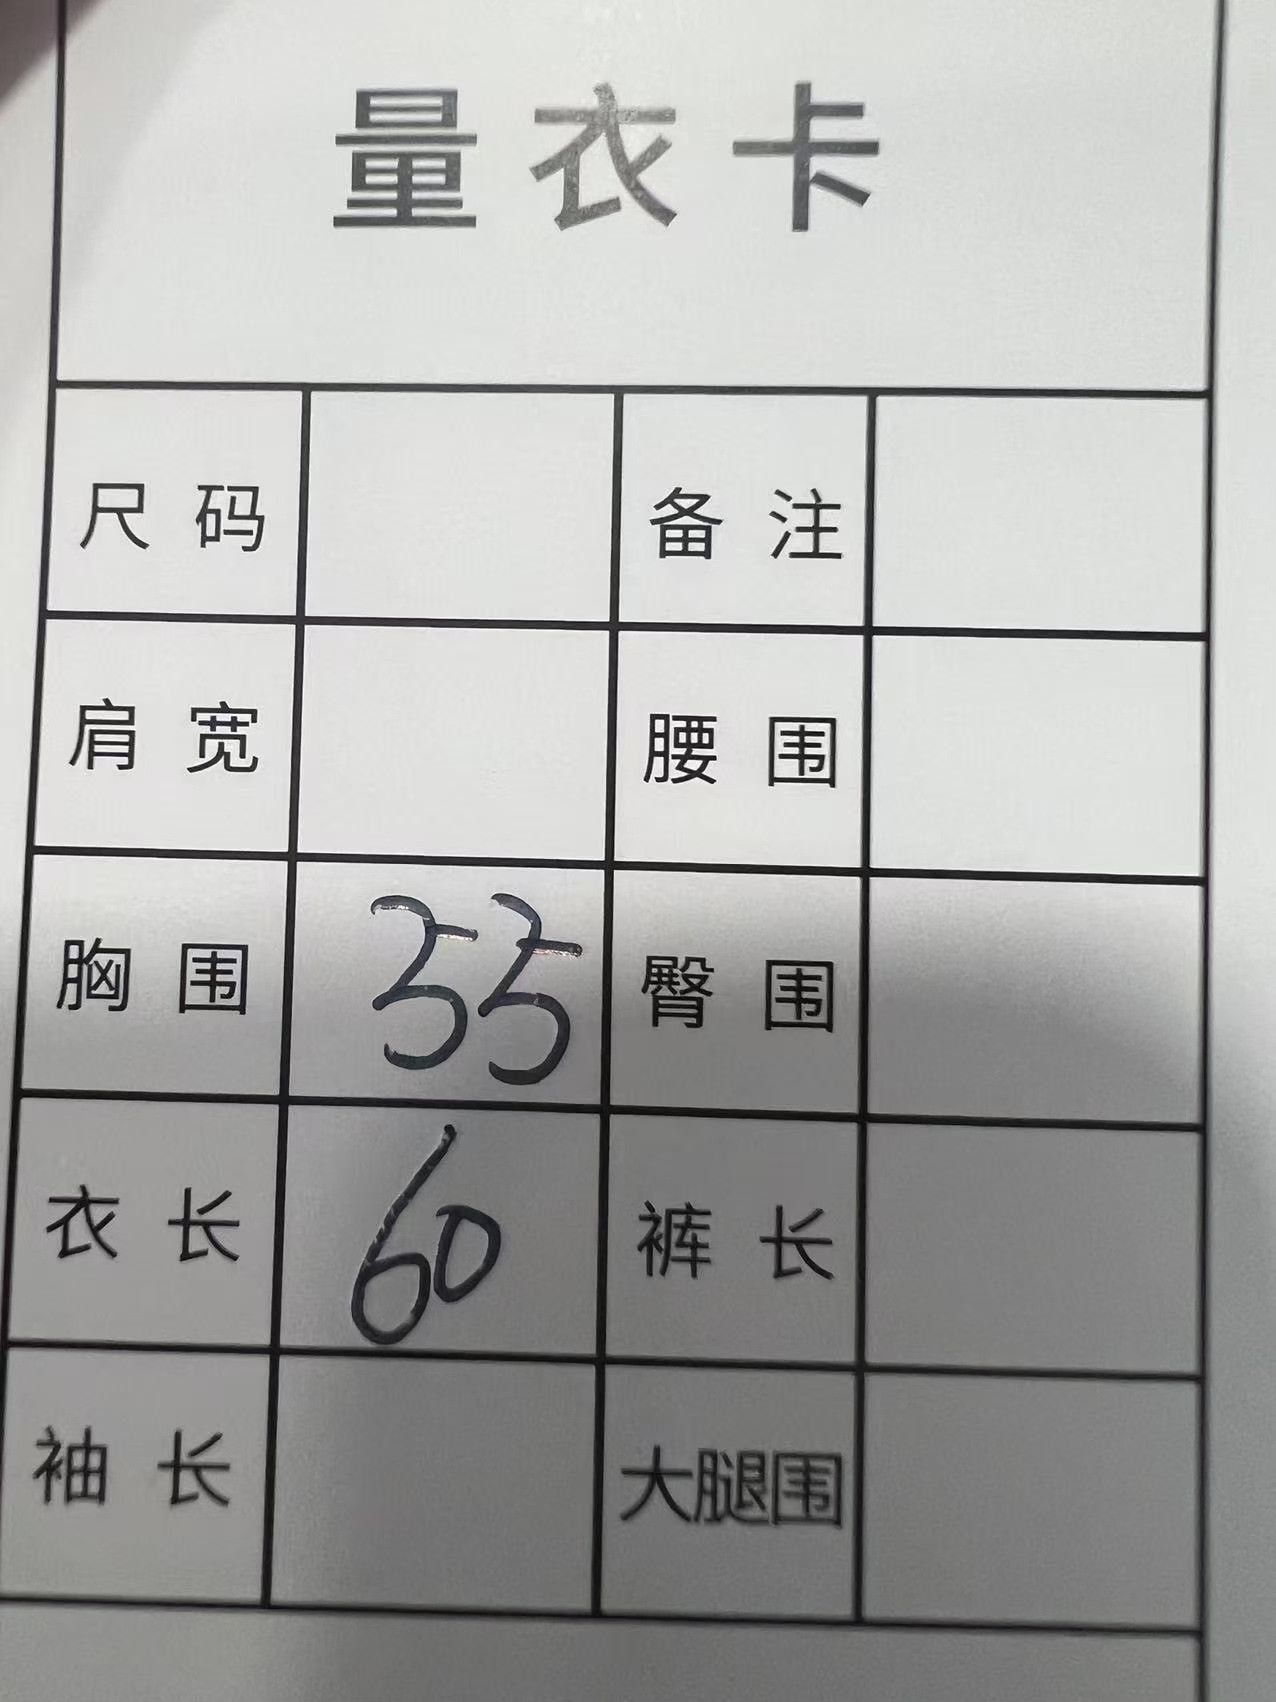 量衣卡
尺码 备注
肩宽 腰围
胸围 55 臀围
衣长 60 裤长
袖长 大腿围